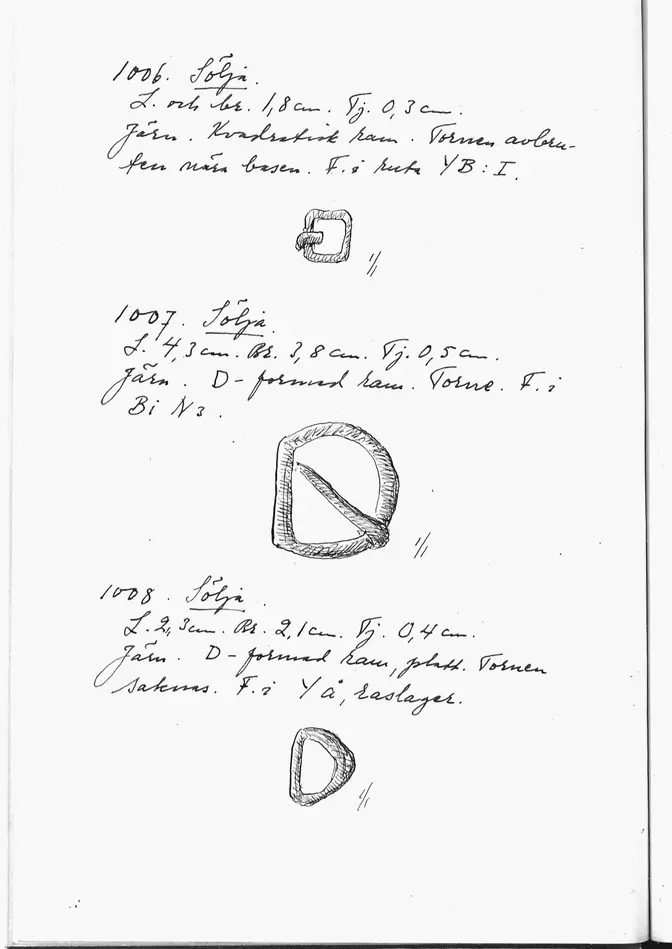 1006. Sölja.
L. och br. 1,8 cm. Tj. 0,3 cm.
Järn. Kvadratisk ram. Tornen avbru-
ten nära basen. F. i ruta YB:I.
1/1
1007. Sölja
L. 4,3 cm. Br. 3,8 cm. Tj. 0,5 cm.
Järn. D-formad ram. Torne. F. i
Bi N3.
1/1
1008. Sölja.
L. 2,3 cm. Br. 2,1 cm. Tj. 0,4 cm.
Järn. D-formad ram, platt. Tornen
saknas. F. i Y å, raslager.
1/1